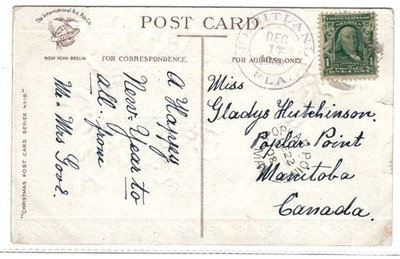 The International Art Pub. Co.
NEW YORK BERLIN
POST CARD.
FOR CORRESPONDENCE
FOR ADDRESS ONLY
"CHRISTMAS POST CARD SERIES
A Happy
New Year to
all from
Mr. Mrs
FRUITLAND
DEC
17
FLA.
1
Miss
Gladys Hutchinson.
Poplar Point
Manitoba
Canada.
22
08